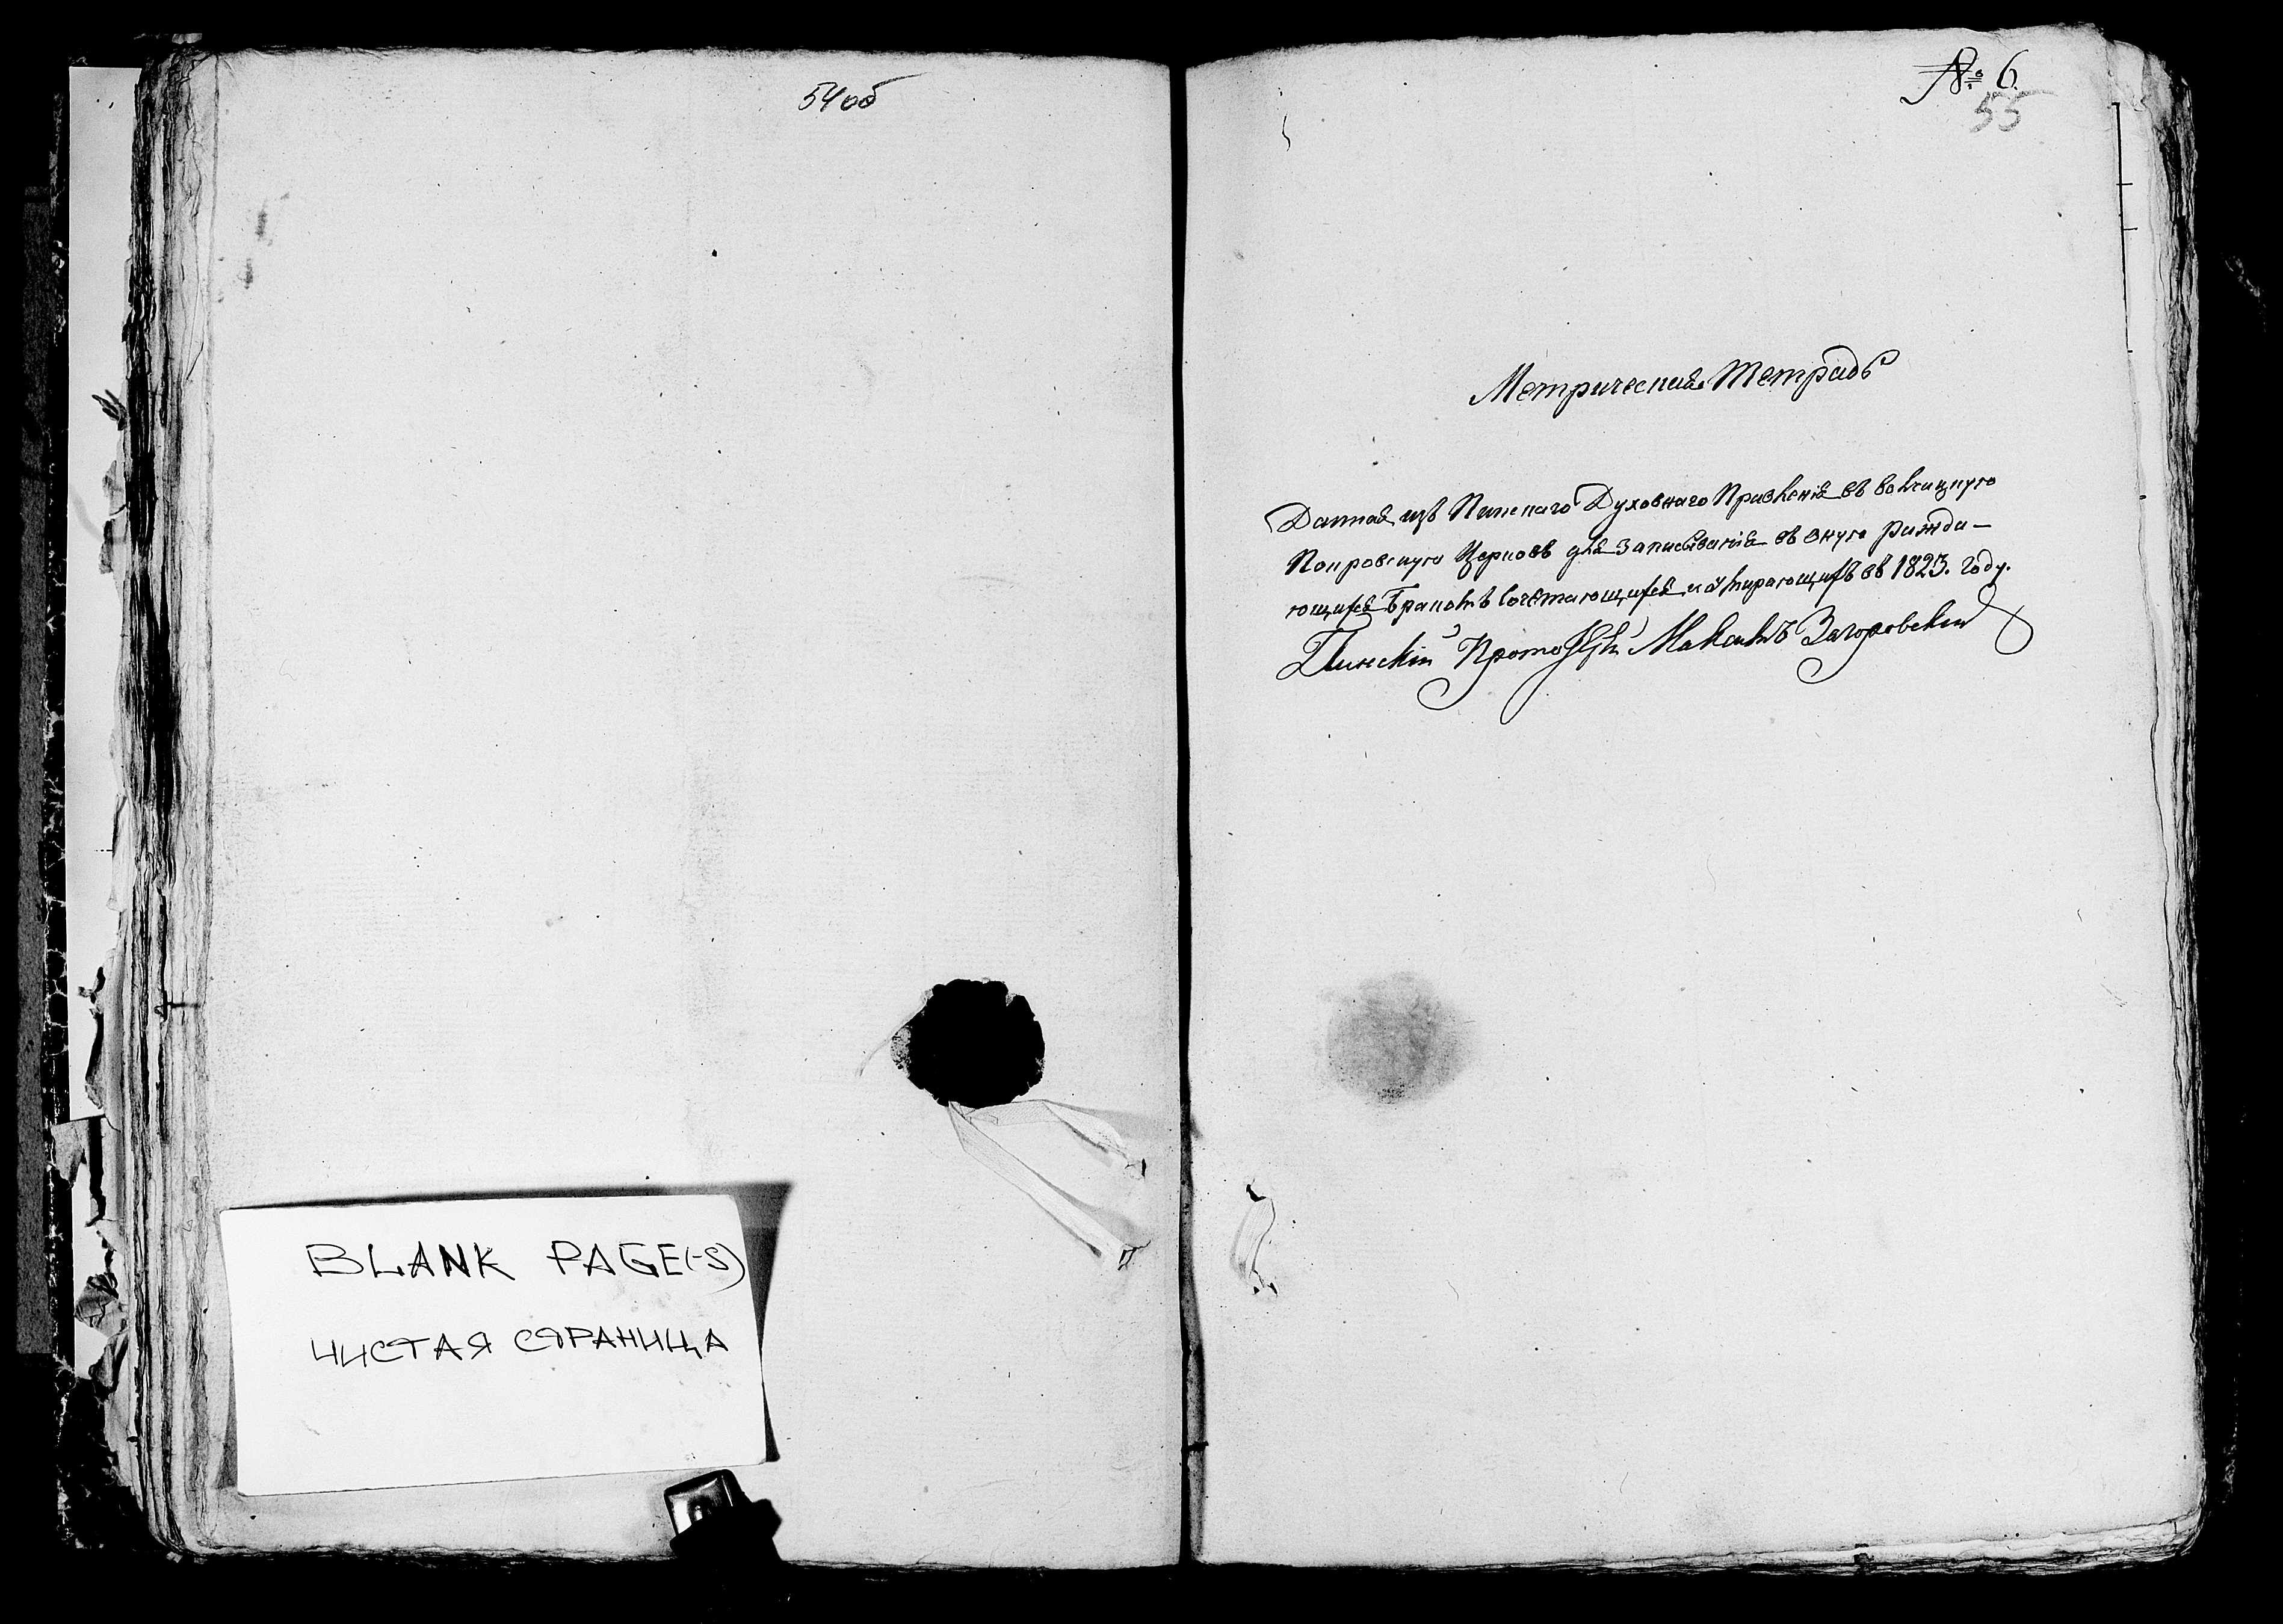 54об
BLANK PAGE(-S)
ЧИСТАЯ СТРАНИЦА
№ 6.
55
Метрическая Тетрадь
Данная изъ Пинскаго Духовнаго Правленія въ
Покровскую Церковь для записыванія въ оную ражда-
ющихся Бракомъ Сочетающихся и умирающихъ въ 1823. году.
Пинскій Загоровский